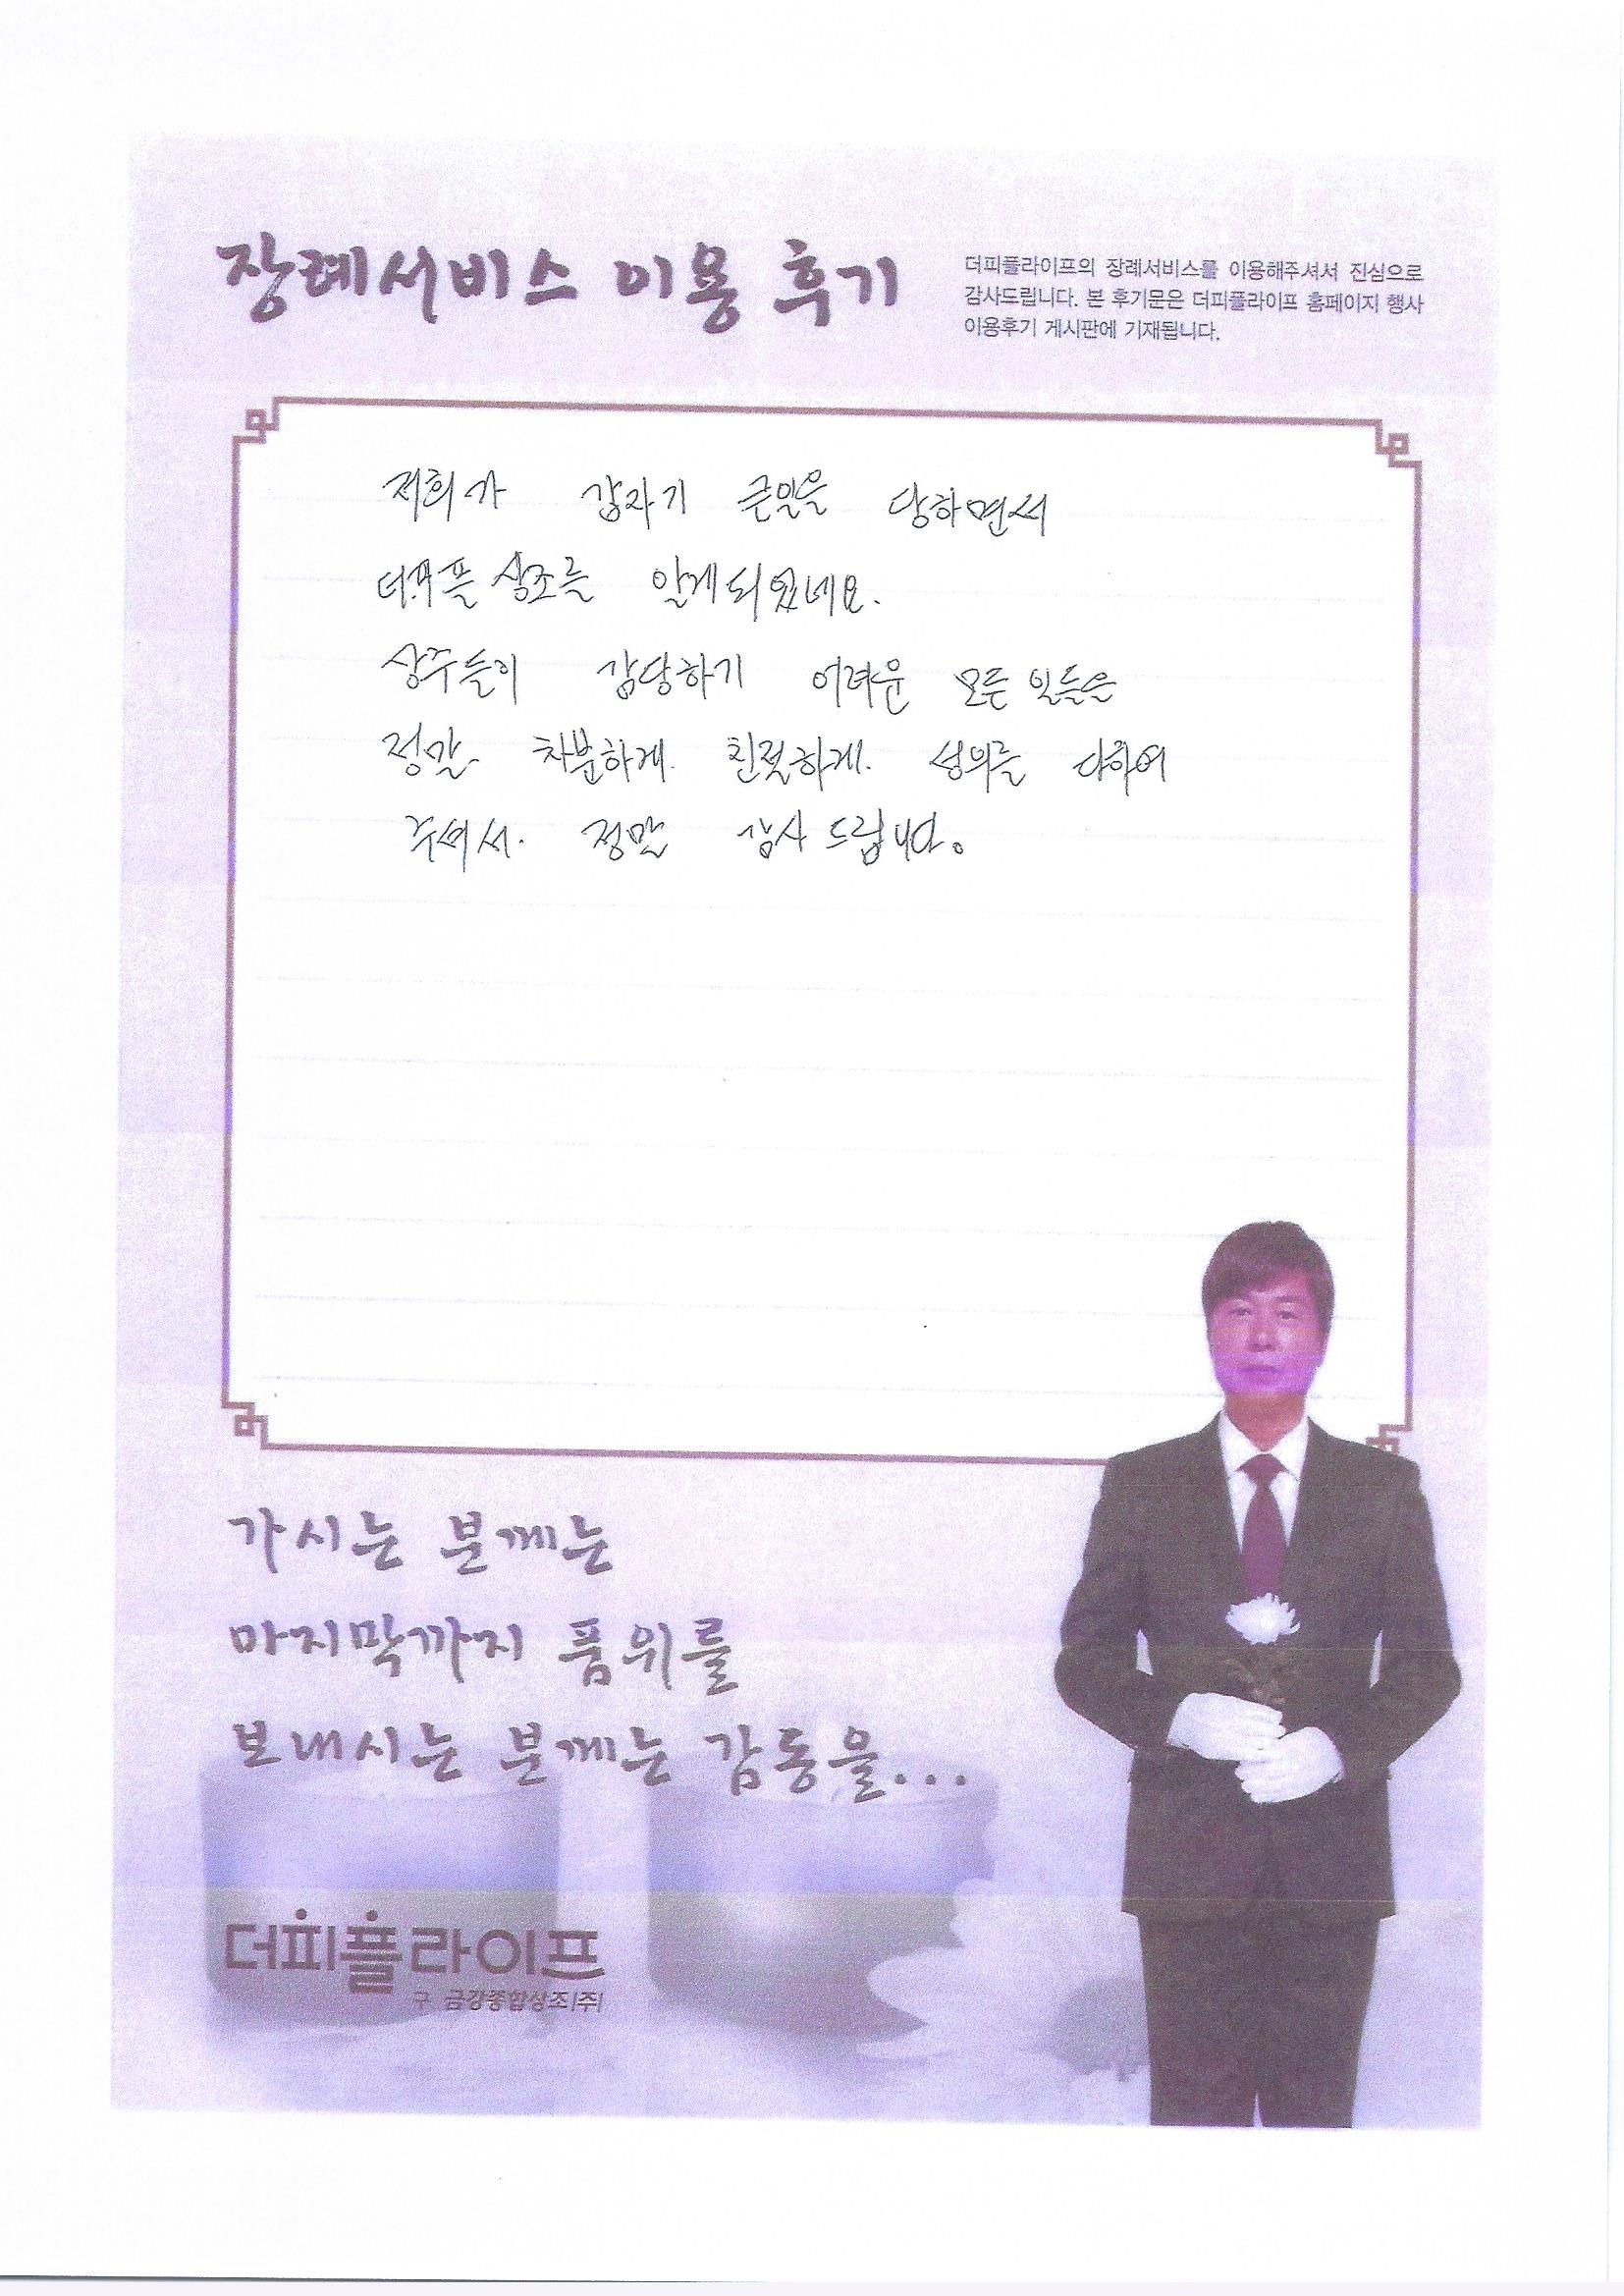 장례서비스 이용 후기
더피플라이프의 장례서비스를 이용해주셔서 진심으로
감사드립니다. 본 후기문은 더피플라이프 홈페이지 행사
이용후기 게시판에 기재됩니다.
저희가 갑자기 큰일을 당하면서
더피플 상조를 알게되었네요.
상주들이 감당하기 어려운 모든 일들을
정말. 차분하게. 친절하게. 성의를 다하여
주셔서. 정말 감사 드립니다.
가시는 분께는
마지막까지 품위를
보내시는 분께는 감동을...
더피플라이프
구 금강종합상조(주)